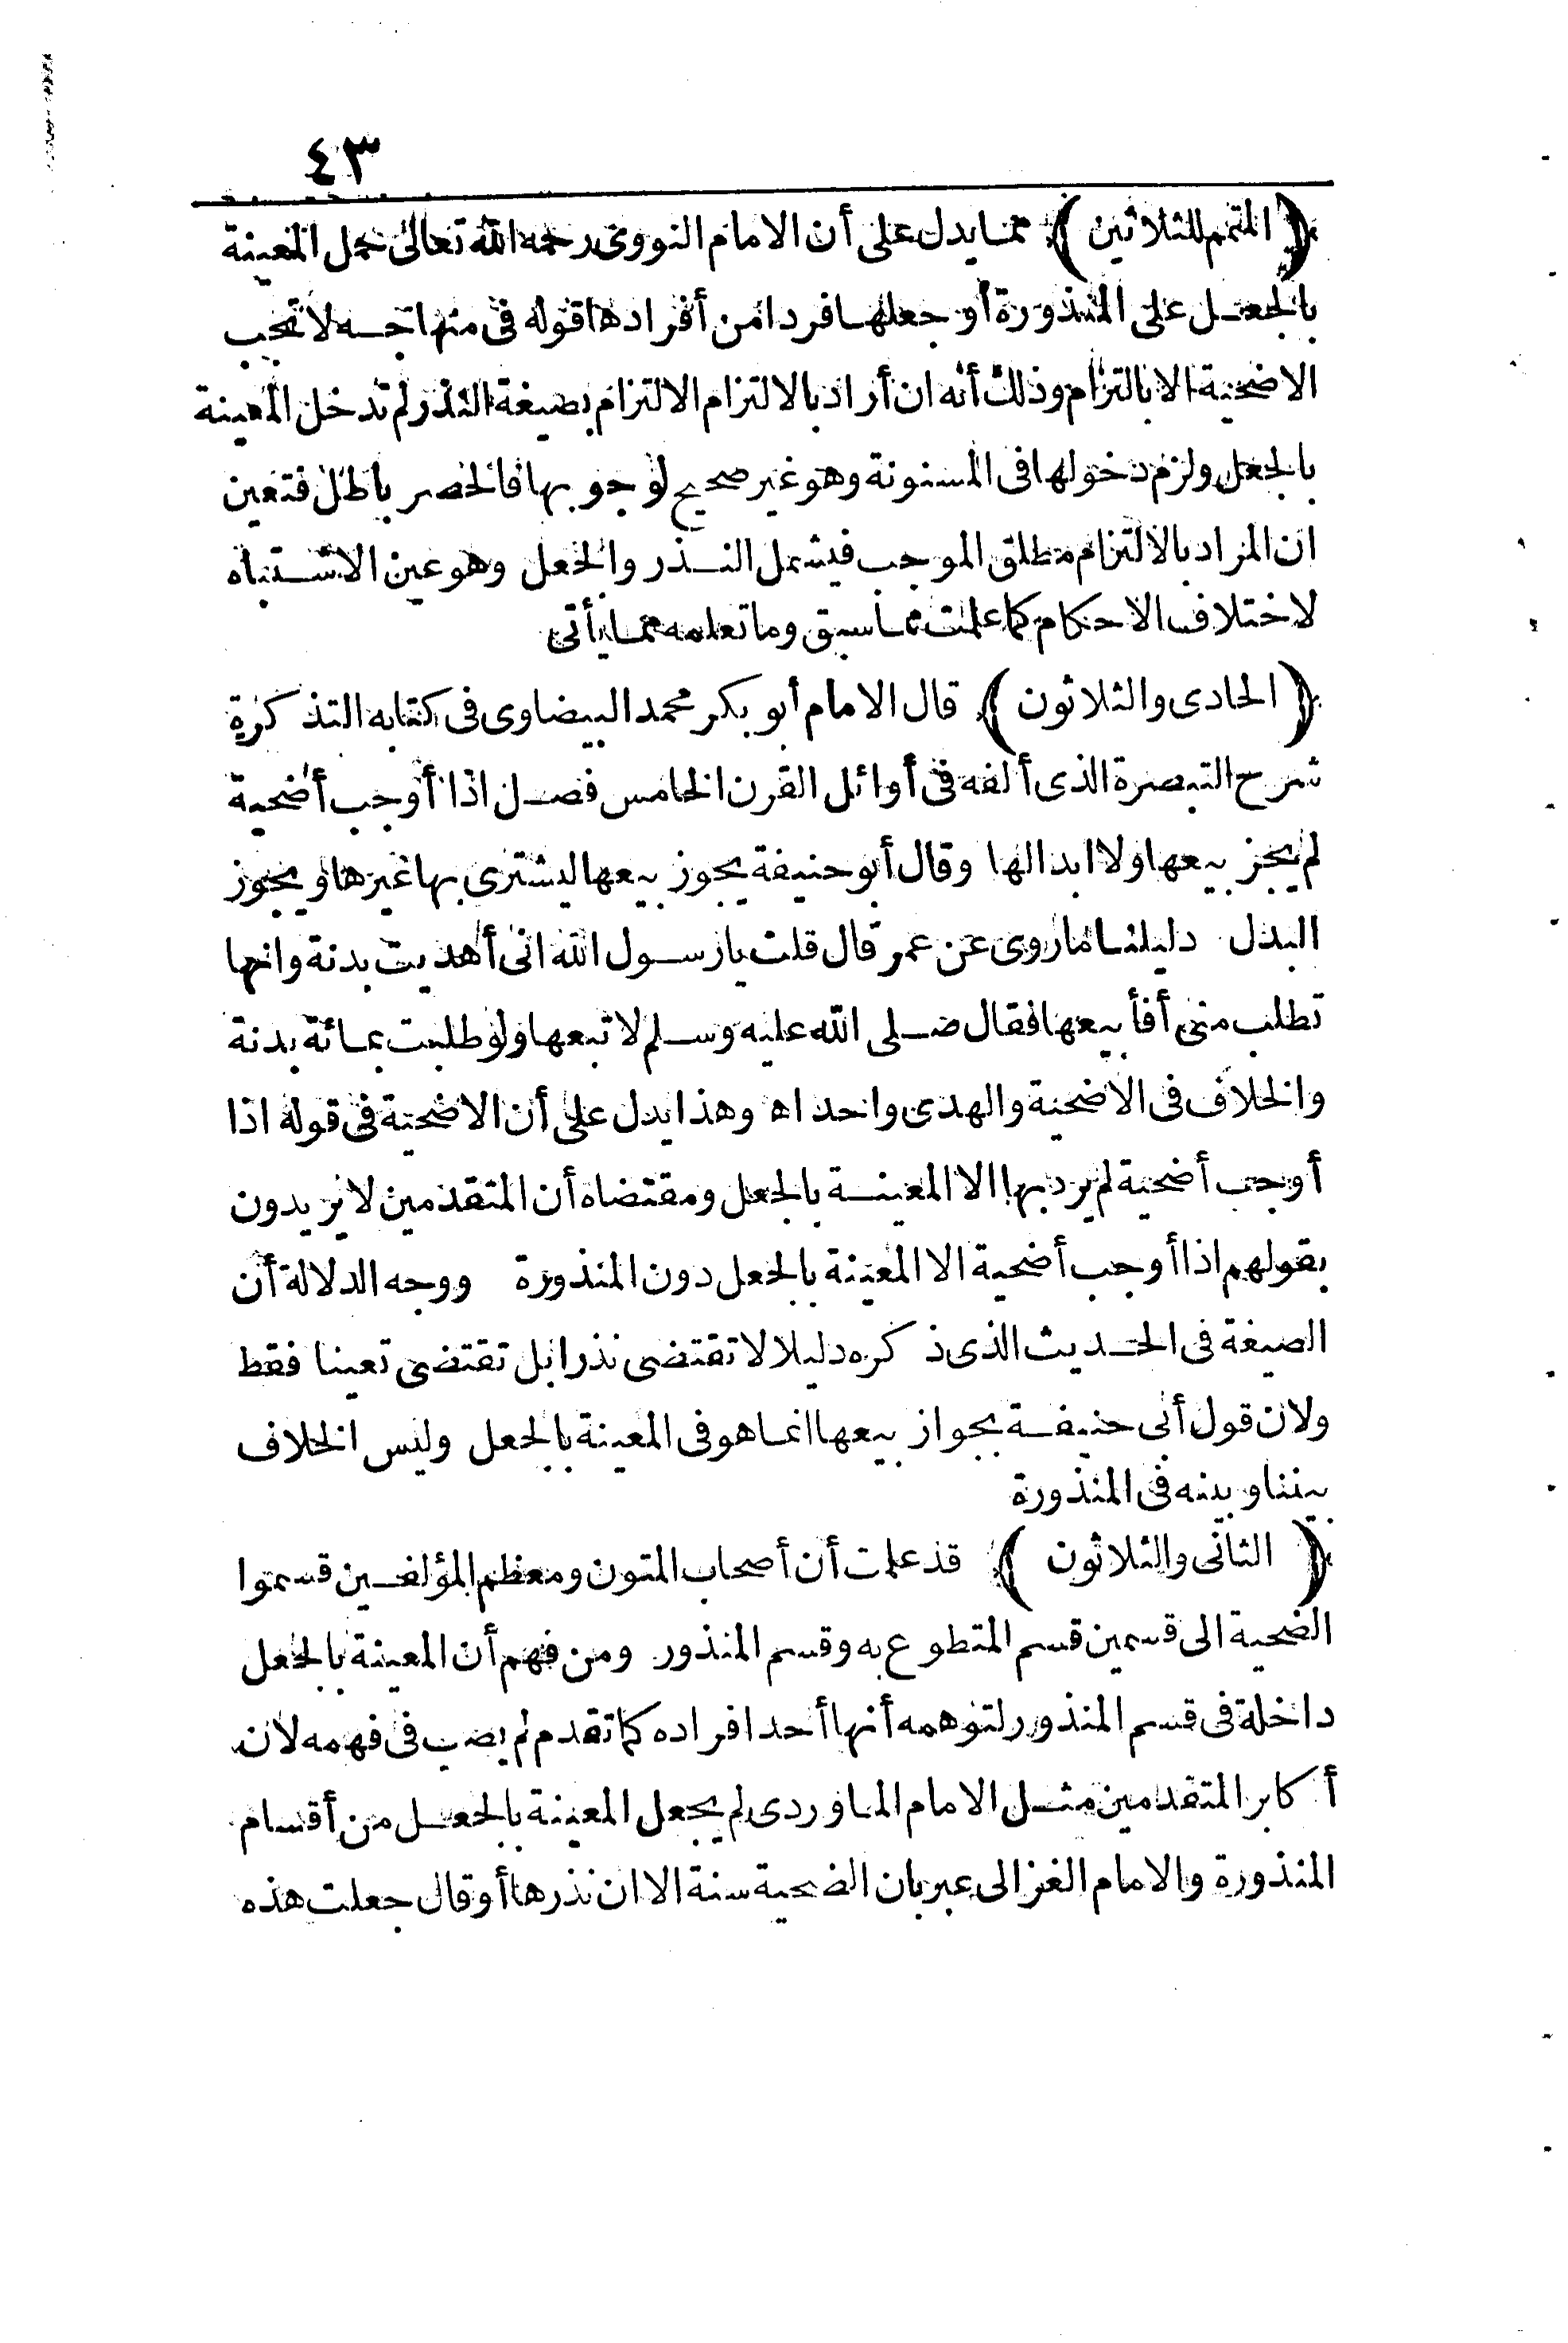 ٤٣
﴿ المتمم للثلاثين ﴾ مما يدل على أن الامام النووى رحمه الله تعالى حمل المعينة
بالجعل على المنذورة أو جعلها فردا من أفرادها قوله فى منهاجه لا تجب
الاضحية الا بالتزام وذلك أنه ان أراد بالالتزام الالتزام بصيغة النذر لم تدخل المعينة
بالجعل ولزم دخولها فى المسنونة وهو غير صحيح لوجوبها فالحصر باطل فتعين
ان المراد بالالتزام مطلق الموجب فيشمل النذر والجعل وهو عين الاشتباه
لاختلاف الاحكام كما علمت مما سبق وما تعلمه مما يأتى
﴿ الحادى والثلاثون ﴾ قال الامام أبو بكر محمد البيضاوى فى كتابه التذكرة
شرح التبصرة الذى ألفه فى أوائل القرن الخامس فصل اذا أوجب أضحية
لم يجز بيعها ولا ابدالها وقال أبو حنيفة يجوز بيعها ليشترى بها غيرها ويجوز
البدل دليلنا ما روى عن عمر قال قلت يا رسول الله انى أهديت بدنة وانها
تطلب منى أفأبيعها فقال صلى الله عليه وسلم لا تبعها ولو طلبت بمائة بدنة
والخلاف فى الاضحية والهدى واحد اه وهذا يدل على أن الاضحية فى قوله اذا
أوجب أضحية لم يرد بها الا المعينة بالجعل ومقتضاه أن المتقدمين لا يريدون
بقولهم اذا أوجب أضحية الا المعينة بالجعل دون المنذورة ووجه الدلالة أن
الصيغة فى الحديث الذى ذكره دليلا لا تقتضى نذرا بل تقتضى تعينا فقط
ولان قول أبى حنيفة بجواز بيعها انما هو فى المعينة بالجعل وليس الخلاف
بيننا وبينه فى المنذورة
﴿ الثانى والثلاثون ﴾ قد علمت أن أصحاب المتون ومعظم المؤلفين قسموا
الضحية الى قسمين قسم المتطوع به وقسم المنذور ومن فهم أن المعينة بالجعل
داخلة فى قسم المنذور لتوهمه أنها أحد افراده كما تقدم لم يصب فى فهمه لان
أكابر المتقدمين مثل الامام الماوردى لم يجعل المعينة بالجعل من أقسام
المنذورة والامام الغزالى عبر بان الضحية سنة الا ان نذرها أو قال جعلت هذه